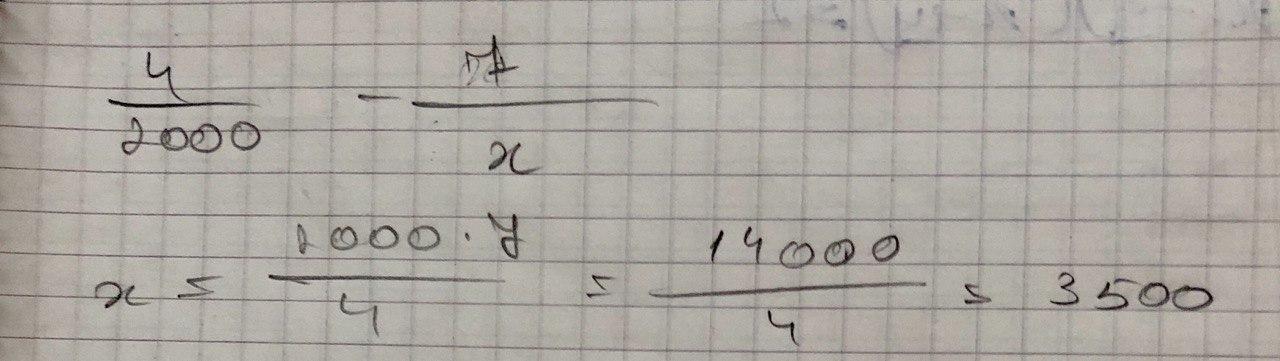 4/2000 - 7/x
x = 2000 · 7 / 4 = 14000 / 4 = 3500